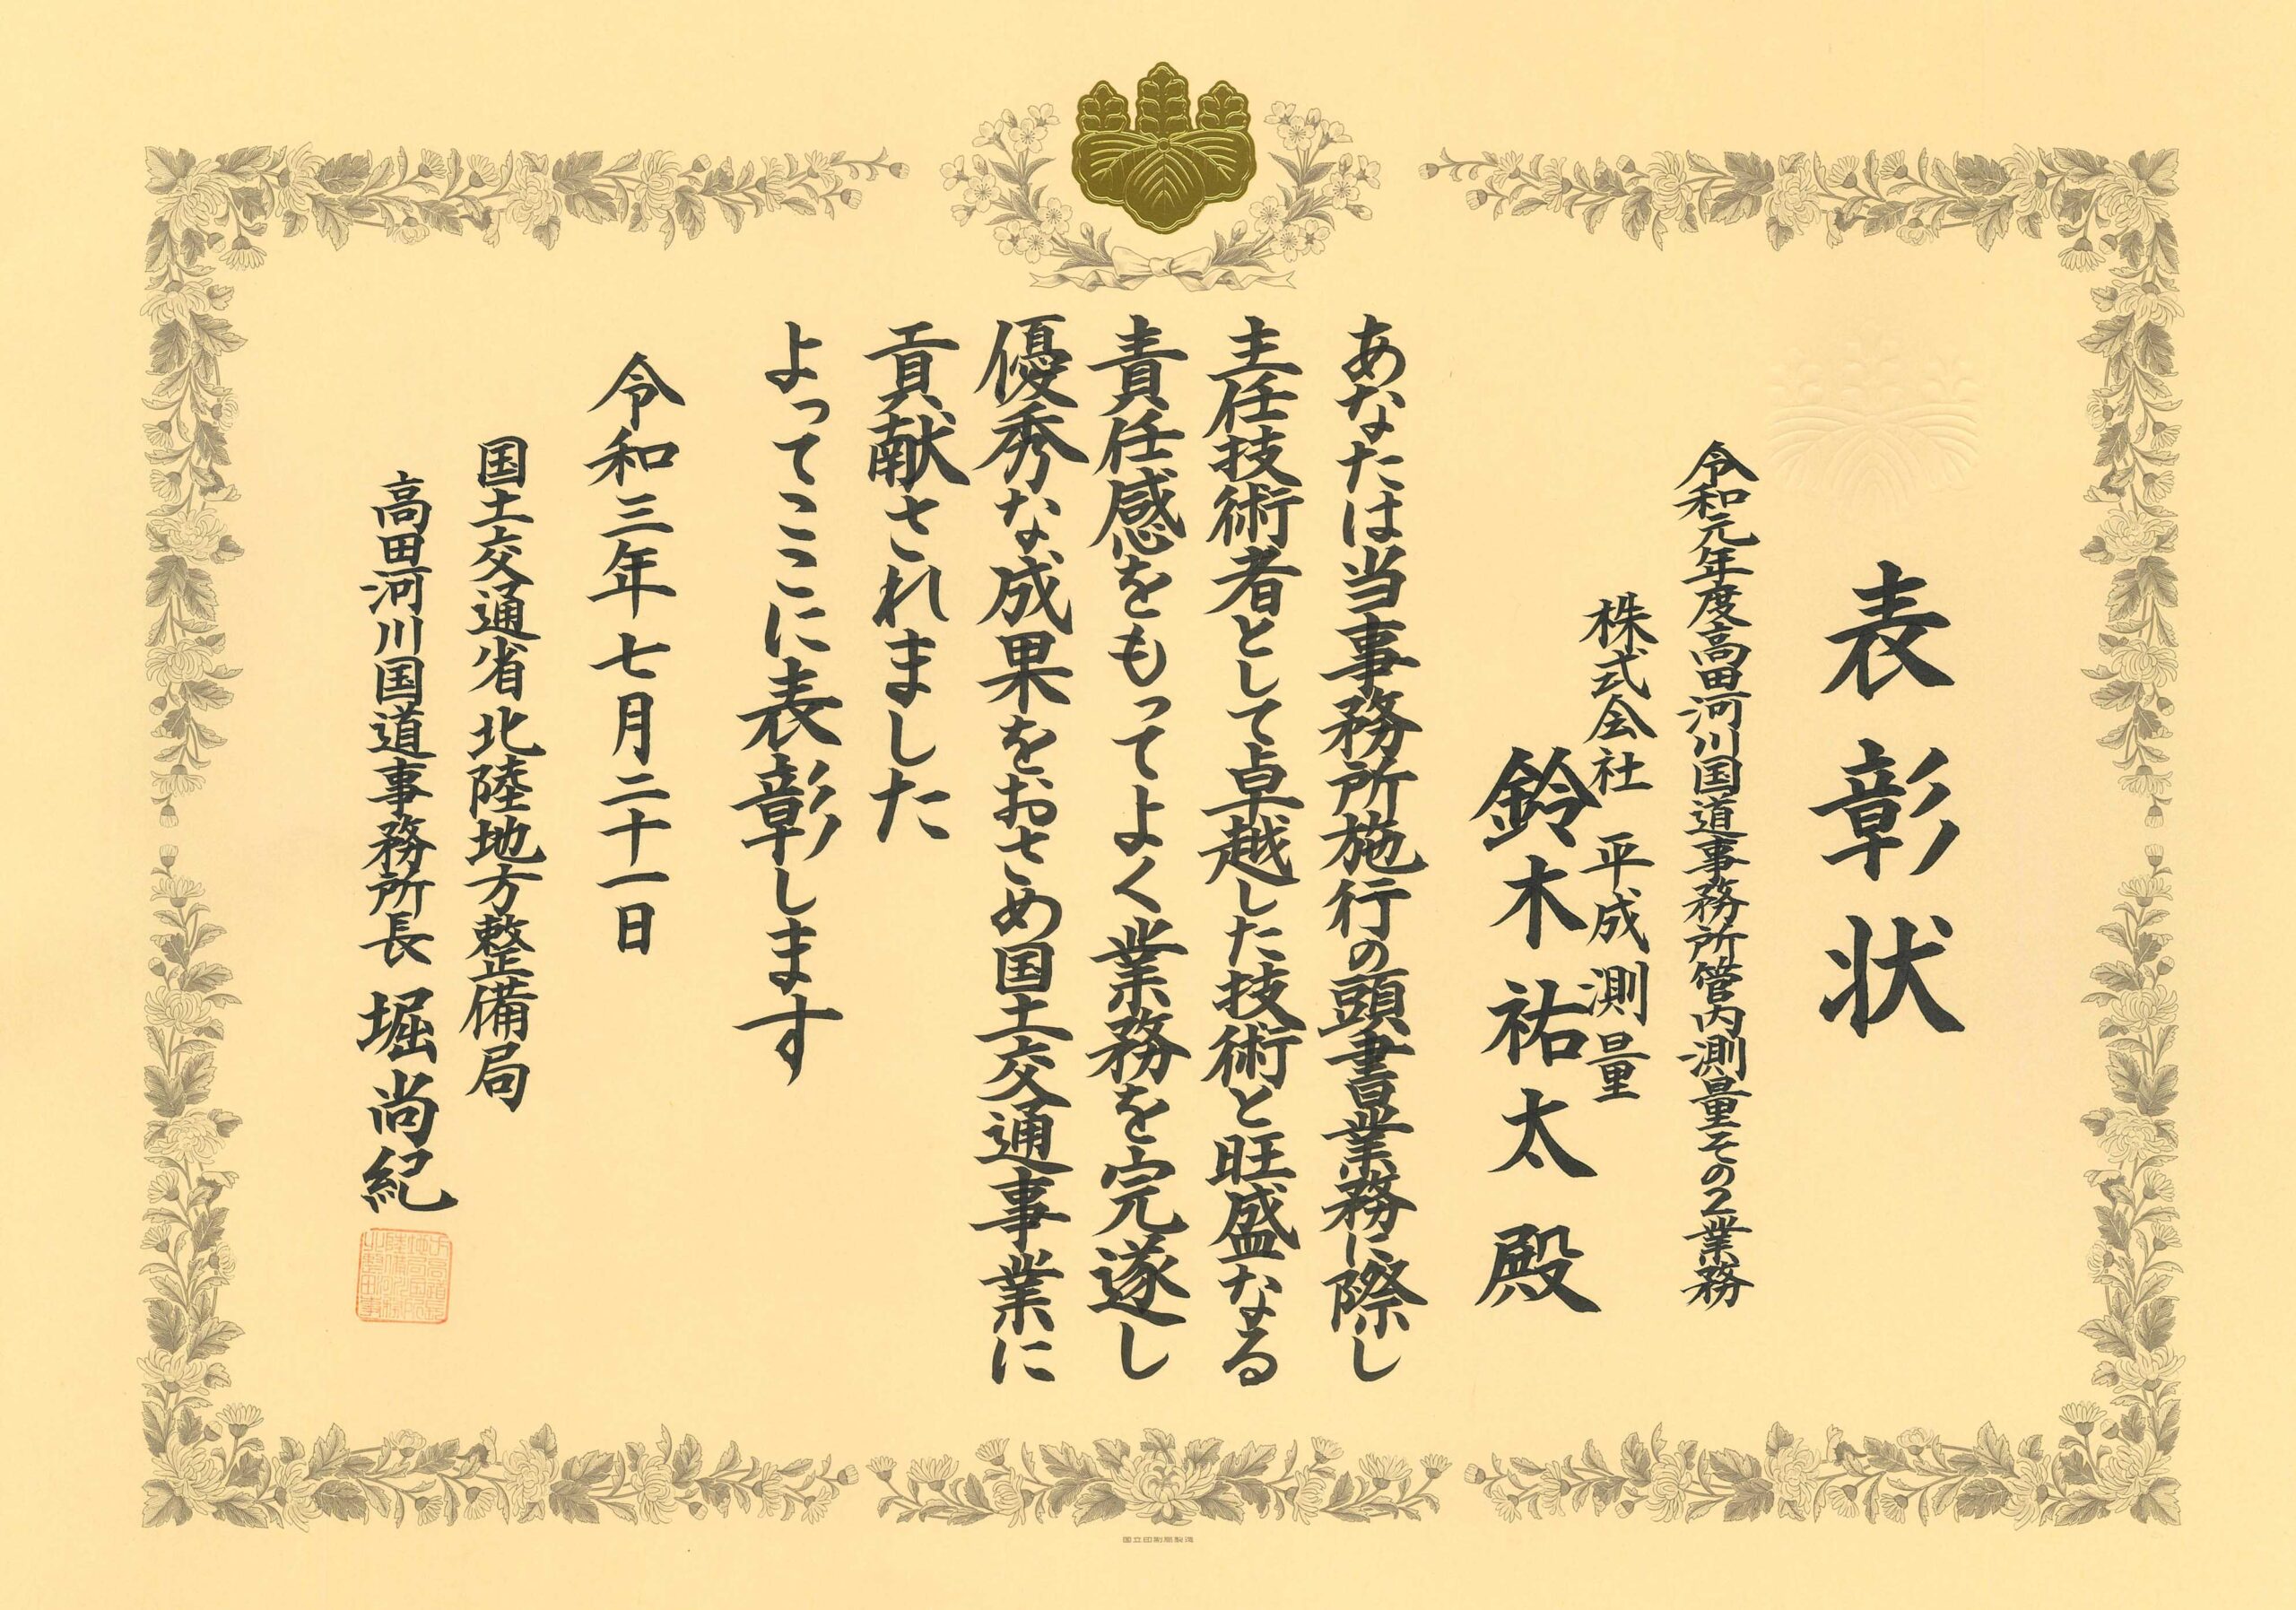 表彰状
令和元年度高田河川国道事務所管内測量その2業務
株式会社 平成測量
鈴木祐太 殿
あなたは当事務所施行の頭書業務に際し
主任技術者として卓越した技術と旺盛なる
責任感をもってよく業務を完遂し
優秀な成果をおさめ国土交通事業に
貢献されました
よってここに表彰します
令和三年七月二十一日
国土交通省北陸地方整備局
高田河川国道事務所長 堀尚紀
国立印刷局製造